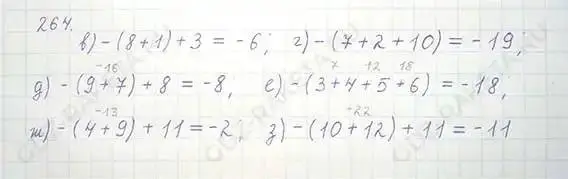 264.
в) -(8+1)+3 = -6; г) -(7+2+10) = -19;
-16 7 12 18
д) -(9+7)+8 = -8, е) -(3+4+5+6) = -18;
-13 -22
ж) -(4+9)+11 = -2; з) -(10+12)+11 = -11